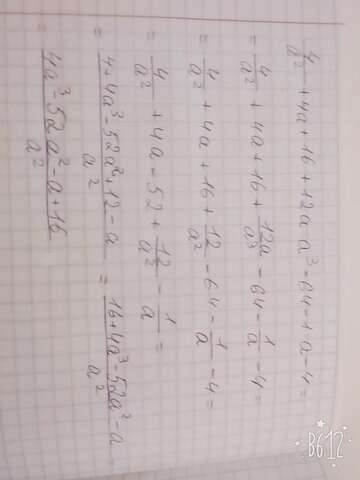 4/a² + 4a + 16 + 12a a³ - 64 - 1 a - 4 =
= 4/a² + 4a + 16 + 12a/a³ - 64 - 1/a - 4 =
= 4/a² + 4a + 16 + 12/a² - 64 - 1/a - 4 =
= 4/a² + 4a - 52 + 12/a² - 1/a =
= 4 + 4a³ - 52a² + 12 - a/a² = 16 + 4a³ - 52a² - a/a²
= 4a³ - 52a² - a + 16/a²
B612